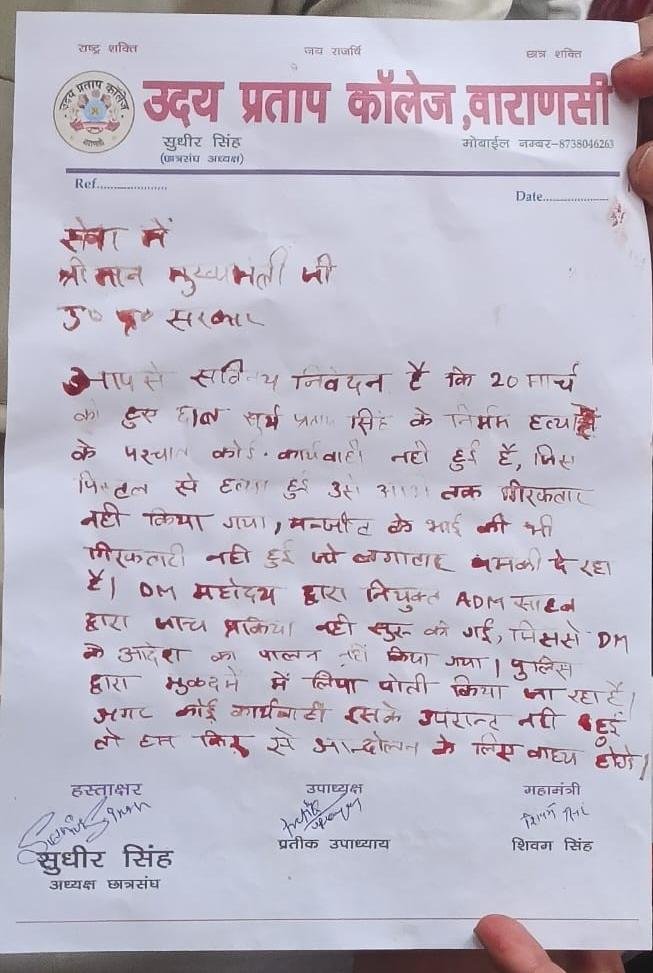 राष्ट्र शक्ति जय राजर्षि छात्र शक्ति
उदय प्रताप कॉलेज, वाराणसी
उदय प्रताप कॉलेज
वाराणसी
सुधीर सिंह मोबाईल नम्बर-8738046263
(छात्रसंघ अध्यक्ष)
Ref.....................
Date....................
सेवा में
श्री मान मुख्यमंत्री जी
उ० प्र० सरकार
आप से सविनय निवेदन है कि 20 मार्च
को हुए छात्र सूर्य प्रताप सिंह के निर्मम हत्या
के पश्चात कोई कार्यवाही नही हुई है, जिस
पिस्टल से हत्या हुई उसे तक गिरफतार
नही किया गया, मन्जीत के भाई की भी
गिरफतारी नही हुई जो लगातार धमकी दे रहा
है। DM महोदय द्वारा नियुक्त ADM साहब
द्वारा जांच प्रकिया नही सुरु की गई, जिससे DM
के आदेश का पालन नहीं किया गया। पुलिस
द्वारा मुकदमे में लिपा पोती किया जा रहा है।
अगर कोई कार्यवाही इसके उपरान्त नही हुई
तो हम फिर से आन्दोलन के लिए बाध्य होंगे।
हस्ताक्षर उपाध्यक्ष महामंत्री
सुधीर सिंह प्रतीक उपाध्याय शिवम सिंह
अध्यक्ष छात्रसंघ